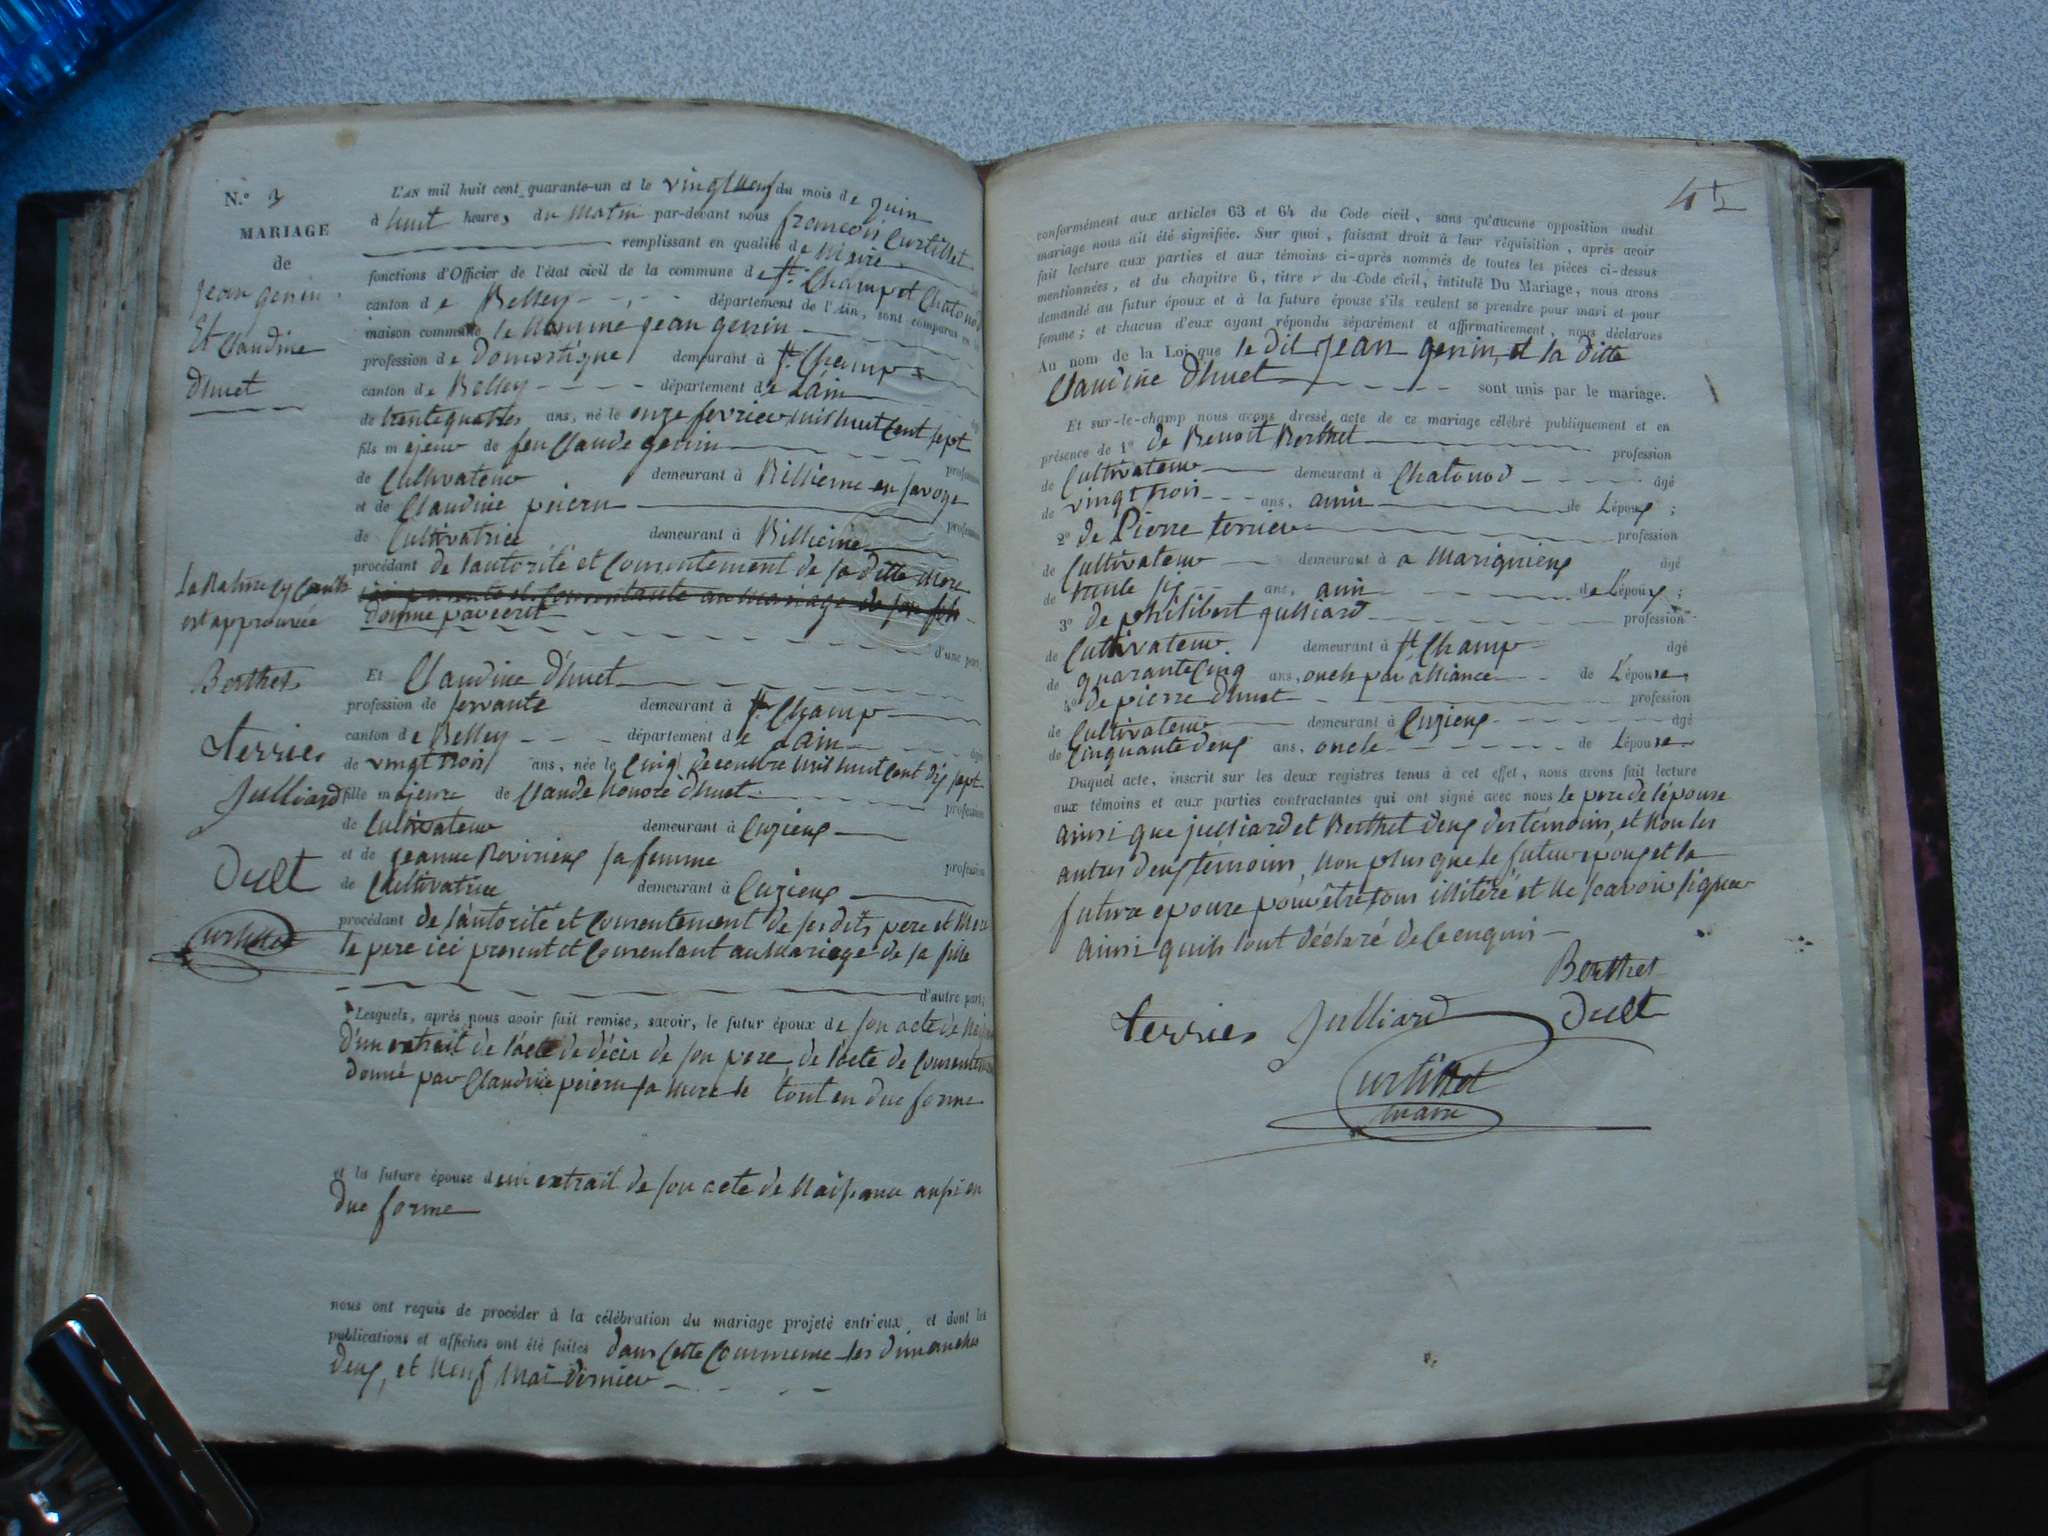 N.º 3
MARIAGE
de
jean genin
Et Claudine
dhuet
L'AN mil huit cent quarante-un et le vingt neuf du mois de juin
à huit heures du matin par-devant nous françois Curtillet
remplissant en qualité de Maire
fonctions d'Officier de l'état civil de la commune de St. Champ et Chatonod
canton de Belley département de l'Ain, sont comparus en la
maison commune le nommé jean genin
profession de domestique demeurant à St. Champ
canton de Belley département de Lain
de trente quatre ans, né le onze fevrier mil huit cent sept
fils majeur de feu Claude genin
de Cultivateur demeurant à Billieme en Savoye profession
et de Claudine peicru
de Cultivatrice demeurant à Billieme profession
procédant de lautorité et Consentement de sa ditte Mere
ici presente et Consentante au mariage de son fils
donné par ecrit
d'une part,
La Rature Cy Contre
est approuvée
Berthet
terrier
Julliard
Duet
Curtillet
Et Claudine d'huet
profession de servante demeurant à St. Champ
canton de Belley département de Lain
de vingt trois ans, née le Cinq decembre mil huit cent dix sept
fille majeure de Claude honoré dhuet profession
de Cultivateur demeurant à Cuzieux
et de jeanne Revirieux sa femme profession
de Cultivatrice demeurant à Cuzieux
procédant de lautorité et Consentement de ses dits pere et Mere
le pere ici present et Consentant au Mariage de sa fille
d'autre part;
Lesquels, après nous avoir fait remise, savoir, le futur époux de son acte de
D'un extrait de lacte de décès de son pere, de lacte de Consentement
donné par Claudine peicru sa mere le tout en due forme
et la future épouse d'un extrait de son acte de Naissance aussi en
due forme
nous ont requis de procéder à la célébration du mariage projeté entr'eux, et dont les
publications et affiches ont été faites dans Cette Commune les dimanches
deux, et Neuf Mai dernier
conformément aux articles 63 et 64 du Code civil, sans qu'aucune opposition audit
mariage nous ait été signifiée. Sur quoi, faisant droit à leur réquisition, après avoir
fait lecture aux parties et aux témoins ci-après nommés de toutes les pièces ci-dessus
mentionnées, et du chapitre 6, titre v du Code civil, intitulé Du Mariage, nous avons
demandé au futur époux et à la future épouse s'ils veulent se prendre pour mari et pour
femme; et chacun d'eux ayant répondu séparément et affirmativement, nous déclarons
Au nom de la Loi que le dit jean genin, et la ditte
Claudine d'huet sont unis par le mariage.
Et sur-le-champ nous avons dressé acte de ce mariage célébré publiquement et en
présence de 1º de Benoît Berthet profession
de Cultivateur demeurant à Chatonod âgé
de vingt trois ans, amis de Lépoux;
2º de Pierre terrier profession
de Cultivateur demeurant à a Marignieux âgé
de trente six ans, ami de Lépoux;
3º de philibert julliard profession
de Cultivateur demeurant à St. Champ âgé
de quarante Cinq ans, oncle par alliance de Lépouse,
4º de pierre dhuet profession
de Cultivateur demeurant à Cuzieux âgé
de Cinquante deux ans, oncle de Lépouse
Duquel acte, inscrit sur les deux registres tenus à cet effet, nous avons fait lecture
aux témoins et aux parties contractantes qui ont signé avec nous le pere de lépouse
ainsi que julliard et Berthet deux des témoins, et Non les
autres deux témoins, Non plus que le futur époux et la
future epouse pour être tous illitéré et Ne scavoir signer
ainsi quils lont déclaré de Ce enquis
Berthet
terrier Julliard Duet
Curtillet
maire